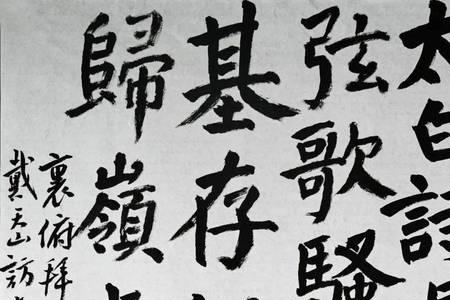 太白詩
弦歌騷
基存
歸嶺
裏俯拜
戴天山訪